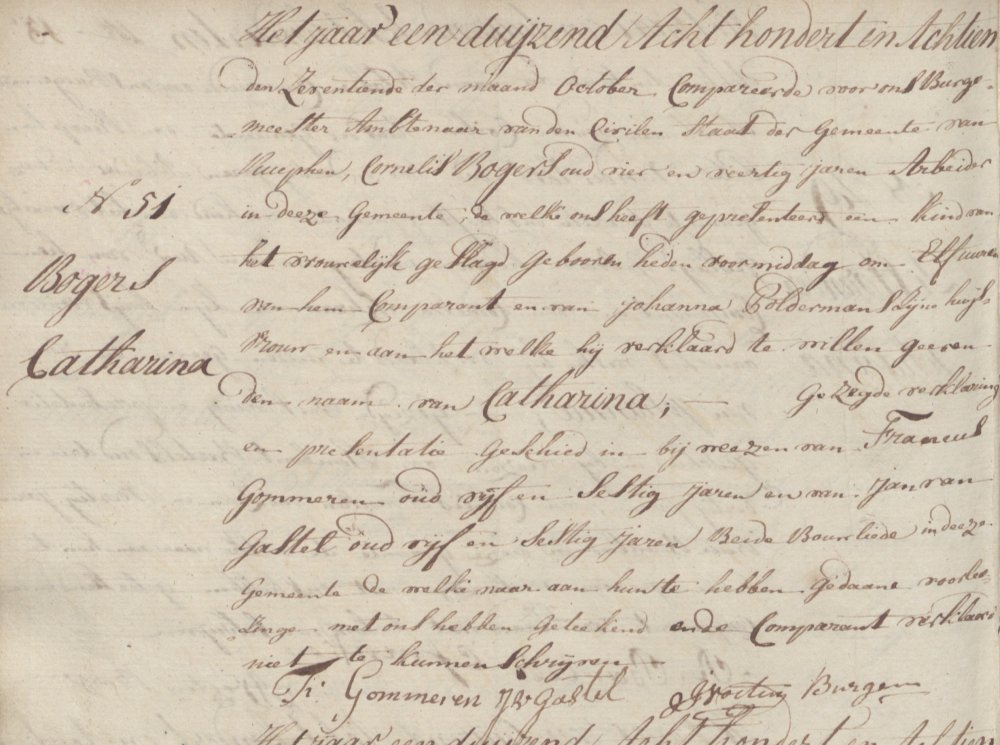 Het jaar een duijzend Acht hondert en Achtien
den Zeventiende der maand October Compareerde voor ons Burge-
meester Ambtenaar van den Civilen Staat der Gemeente van
Rucphen, Cornelis Bogers oud vier en veertig jaren Arbeider
in deeze Gemeente, de welke ons heeft gepresenteerd een kind van
N 51
het vrouwelijk geslagt geboren heden voormiddag om Elf uuren
Bogers
van hem Comparant en van Johanna Poldermans Zijne huijs
Catharina
vrouw en aan het welke hij verklaard te willen geeven
den naam van Catharina, — Gezegde verklaring
en presentatie Geschied in bij weezen van Francus
Gommeren oud vijf en sestig Jaren en van Jan van
Gastel oud vijf en sestig jaren Beide Bouwliede in deeze
Gemeente de welke naar aan hunte hebben gedaane voorlee-
zinge met ons hebben geteekend ende Comparant verklaard
niet te kunnen schrijven
Fr Gommeren J V Gastel Burgem
Het jaar een duijzend Acht hondert en Achtien